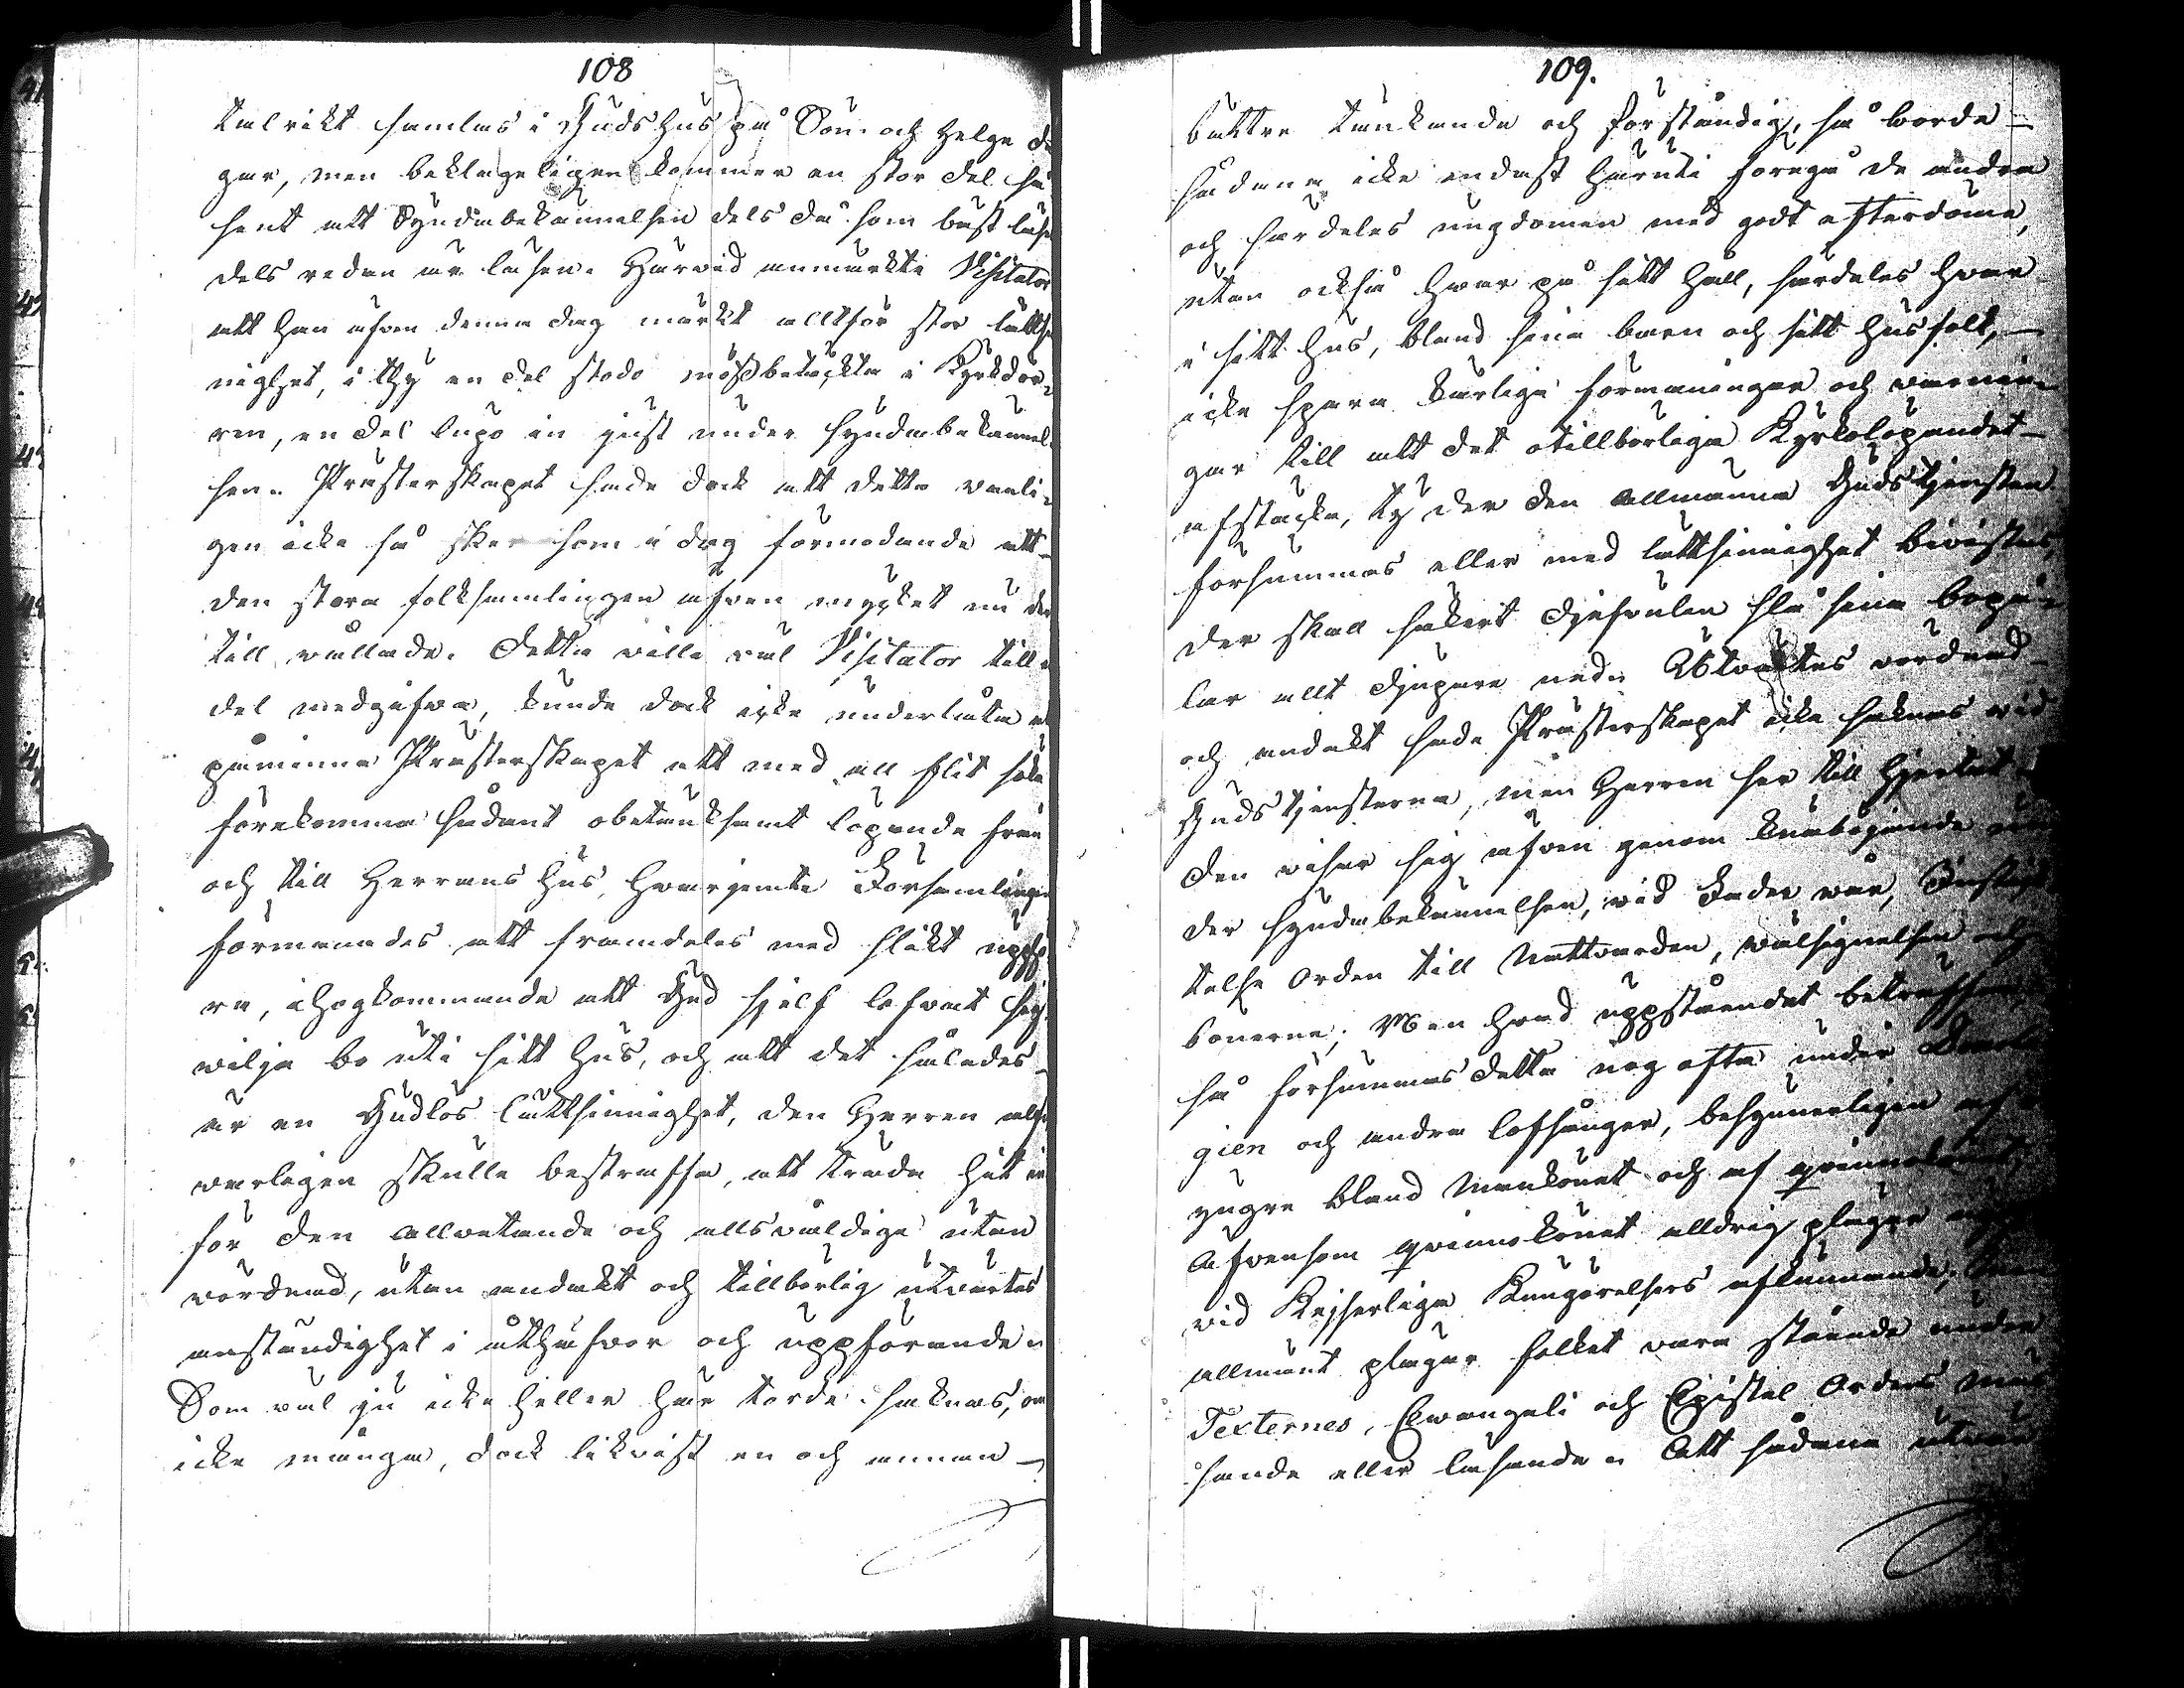 108
talrikt samlas i Guds hus på Sön- och Helge da
gar, men beklageligen kommer en stor del så
sent att Syndabekännelsen dels då som bäst läse
dels redan är läsen. Härvid anmärkte Visitator
att han äfven denna dag märkt alltför stor lättsi
nighet, i thy en del stodo mössbetäckta i Kyrkdör-
ren, en del lupo in just under syndabekännel-
sen. Prästerskapet sade dock att detta vanli-
gen icke så sker som i dag förmodande att
den stora folksamlingen äfven mycket nu der
till vållade. Detta ville väl Visitator till
del medgifva, kunde dock icke underlåta at
påminna Prästerskapet att med all flit söka
förekomma sådant obetänksamt löpande från
och till Herrans hus, hvarjemte Församlingen
förmanades att framdeles med flikt uppfö
ra, ihogkommande att Gud sjelf lofvat sig
vilja bo uti sitt hus, och att det således
är en Gudlös lättsinnighet, den Herren all
varligen skulle bestraffa, att träda hit in
för den allvetande och allsvåldige utan
vördnad, utan andakt och tillbörlig utvärtes
anständighet i åthäfvor och uppförande.
Som väl ju icke heller här torde saknas, om
icke många, dock likvist en och annan
109.
bättre tänkande och förståndig, så borde
sådane icke endast häruti föregå de andra
och särdeles ungdomen med godt efterdöme,
utan också hvar på sitt håll, särdeles hvar
i sitt hus, bland sina barn och sitt husfolk,
icke spara kärliga förmaningar och varnin-
gar till att det otillbörliga Kyrkolöpandet
afstäcka, ty der den allmänna Gudstjensten
försummas eller med lättsinnighet bivistas,
der skall säkert djefvulen slå sina bopå-
lar allt djupare ned. Utvärtes vördnad
och andakt sade Prästerskapet icke saknas vid
Gudstjensterna, men Herren ser till hjertat
den visar sig äfven genom knäböjande un
der syndabekännelsen, vid Fader vår, Instif
telse Orden till Nattvarden, välsignelsen och
bönerna; Men hvad uppståendet beträffar,
så försummas detta nog ofta under
gien och andra lofsånger, besynnerligen af
yngre bland mankönet och af qvinnokönet,
äfvensom qvinnokönet alldrig plägar
vid Kejserliga Kungörelsers afkunnande,
allmänt plägar folket vara stående under
Texternes, Ewangeli och Epistel Ordens mäs
sande eller läsande. Att sådana utvär